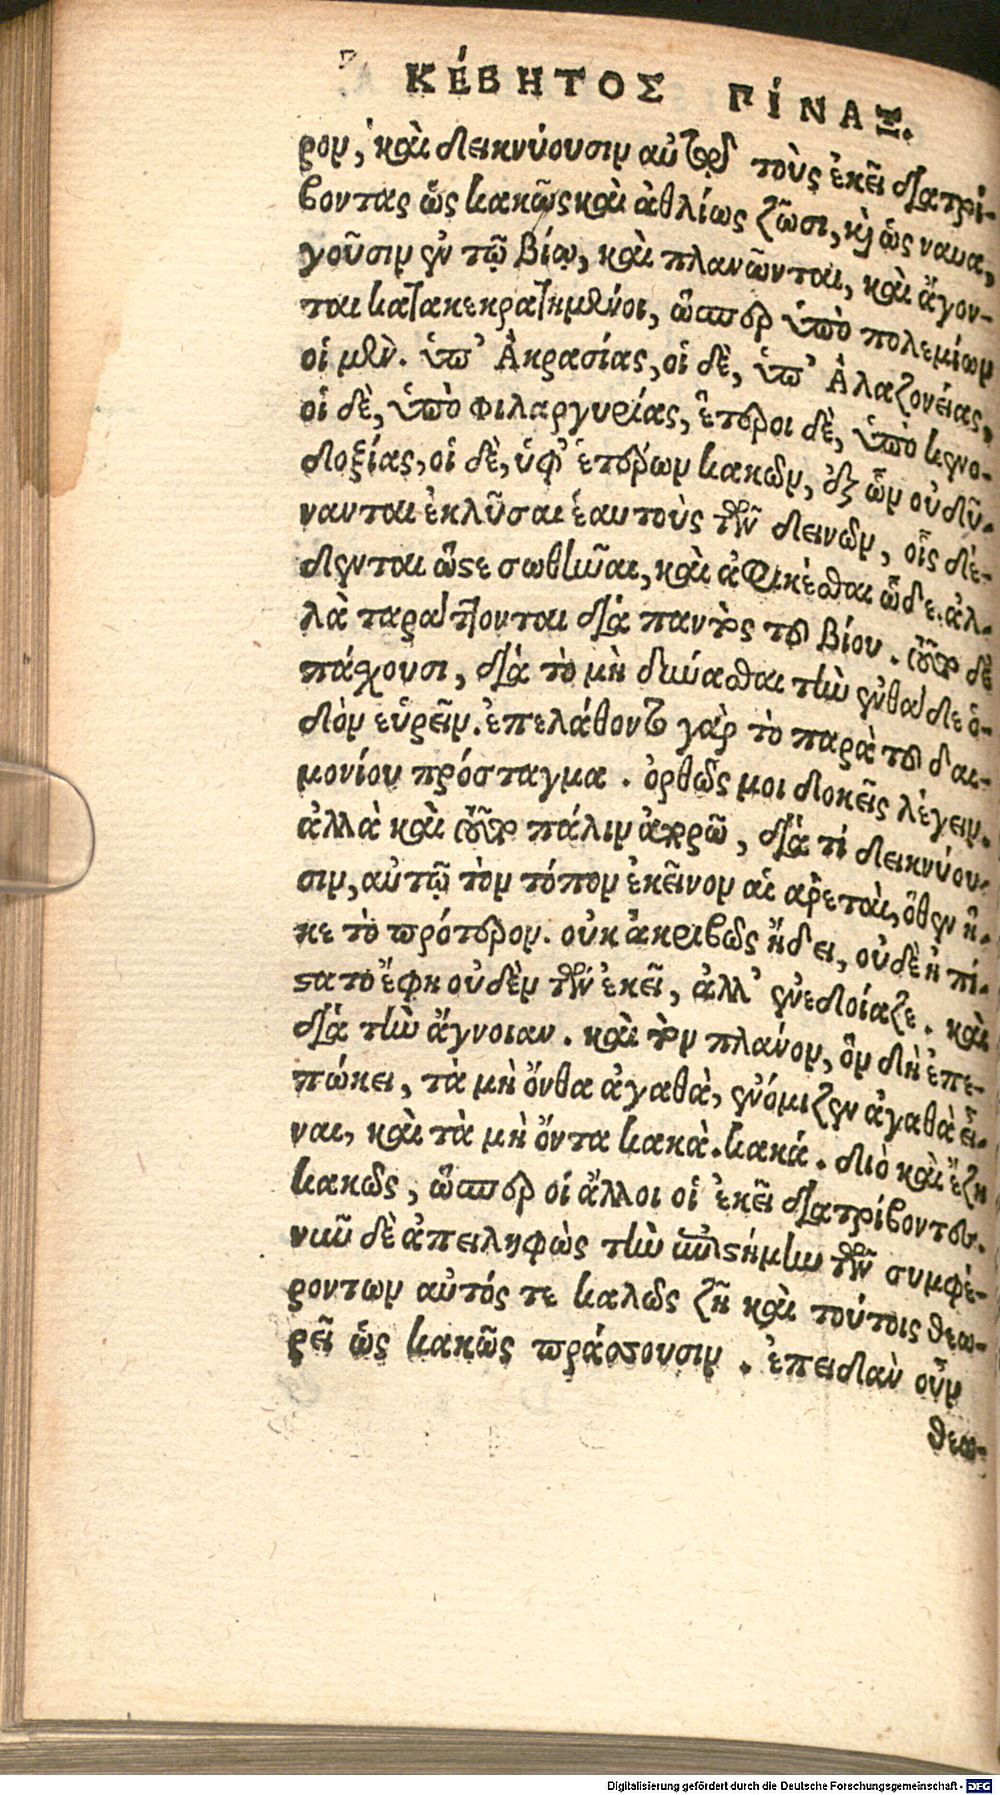 ΚΈΒΗΤΟΣ ΠΊΝΑΞ.
ρον, καὶ δεικνύουσιν αὐτῷ τοὺς ἐκεῖ διατρί-
βοντας ὡς κακῶς καὶ ἀθλίως ζῶσι, κỳ ὡς ναυα,
γοῦσιν ἐν τῷ βίῳ, καὶ πλανῶνται, καὶ ἄγον-
ται κατακεκρατημένοι, ὥσπερ ὑπὸ πολεμίων
οἱ μὲν. ὑπ' Ἀκρασίας, οἱ δὲ, ὑπ' Ἀλαζονείας,
οἱ δὲ, ὑπὸ φιλαργυρίας, ἕτεροι δὲ, ὑπὸ κενο-
δοξίας, οἱ δὲ, ὑφ' ἑτέρων κακῶν, ἐξ ὧν οὐ δύ-
νανται ἐκλῦσαι ἑαυτοὺς τῶν δεινῶν, οἷς δέ-
δενται ὥστε σωθῆναι, καὶ ἀφικέσθαι ὧδε. ἀλ-
λὰ ταράττονται διὰ παντὸς τοῦ βίου. τοῦτο δὲ
πάσχουσι, διὰ τὸ μὴ δύνασθαι τὴν ἐνθάδε ὁ-
δὸν εὑρεῖν. ἐπελάθοντο γὰρ τὸ παρὰ τοῦ δαι-
μονίου πρόσταγμα. ὀρθῶς μοι δοκεῖς λέγειν.
ἀλλὰ καὶ τοῦτο πάλιν ἀπορῶ, διὰ τί δεικνύου-
σιν, αὐτῷ τὸν τόπον ἐκεῖνον αἱ ἀρεταὶ, ὅθεν ἥ-
κε τὸ πρότερον. οὐκ ἀκριβῶς ᾔδει, οὐδὲ ἠπί-
στατο ἔφη οὐδὲν τῶν ἐκεῖ, ἀλλ' ἐνεδοίαζε. καὶ
διὰ τὴν ἄγνοιαν. καὶ τὸν πλάνον, ὃν δὴ ἐπε-
πώκει, τὰ μὴ ὄντα ἀγαθὰ, ἐνόμιζεν ἀγαθὰ εἶ-
ναι, καὶ τὰ μὴ ὄντα κακὰ. κακά. διὸ καὶ ἔζη
κακῶς, ὥσπερ οἱ ἄλλοι οἱ ἐκεῖ διατρίβοντες.
νῦν δὲ ἀπειληφὼς τὴν ἐπιστήμην τῶν συμφε-
ρόντων αὐτός τε καλῶς ζῇ καὶ τούτοις θεω-
ρεῖ ὡς κακῶς πράσσουσιν. ἐπειδὰν οὖν
θεω-
Digitalisierung gefördert durch die Deutsche Forschungsgemeinschaft - DFG